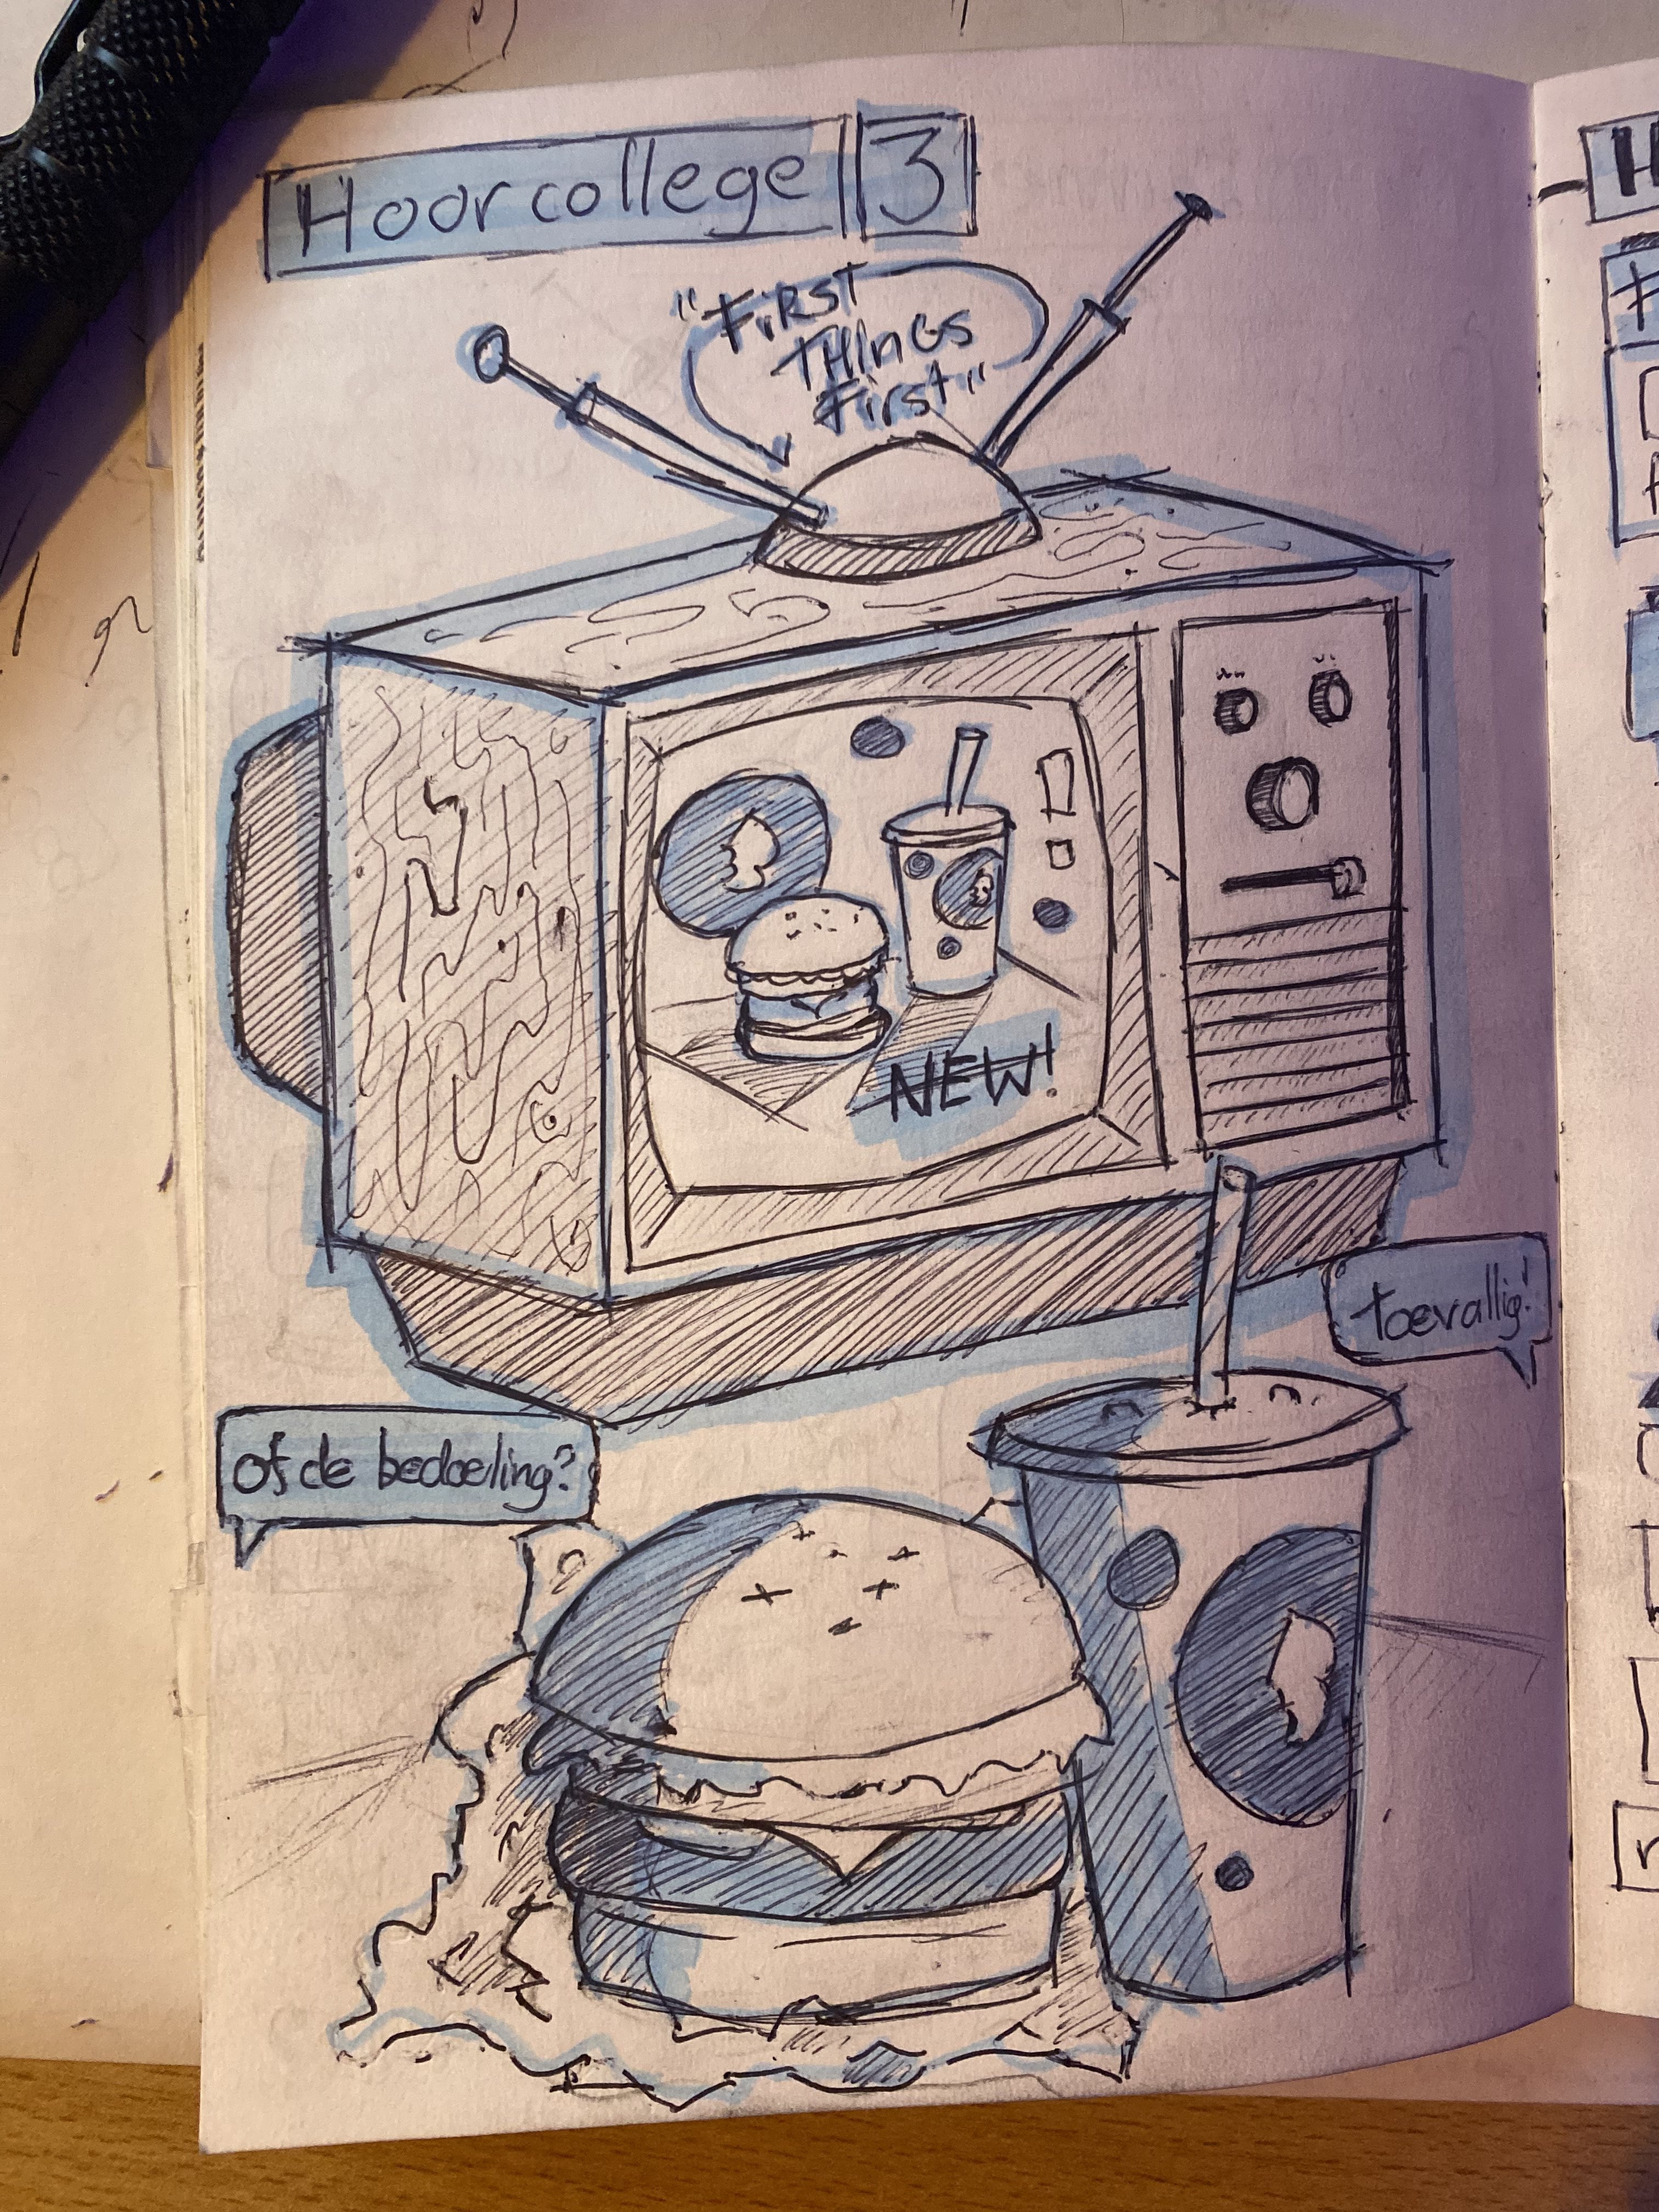 Hoorcollege 3
"First
Things
First"
NEW!
toevallig!
of de bedoeling?